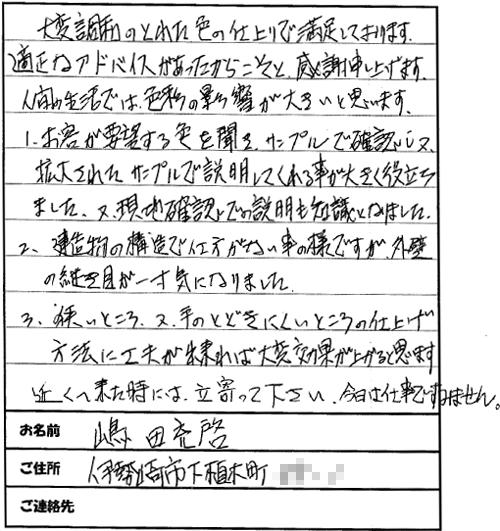 大変調和のとれた色の仕上りで満足しております。
適正なアドバイスがあったからこそと、感謝申し上げます。
人間の生活では、色彩の影響が大きいと思います。
1. お客が要望する色を聞き、サンプルで確認し又
拡大されたサンプルで説明してくれる事が大きく役立ち
ました。又、現地確認での説明も知識となりました。
2、建造物の構造で仕方がない事の様ですが、外壁
の継ぎ目が一寸気になりました。
3、狭いところ、又、手のとどきにくいところの仕上げ
方法に工夫が出来れば大変効果が上がると思います
近くへ来た時には、立寄って下さい。今日は仕事ですみません。
お名前 嶋田充啓
ご住所 伊勢崎市下植木町
ご連絡先